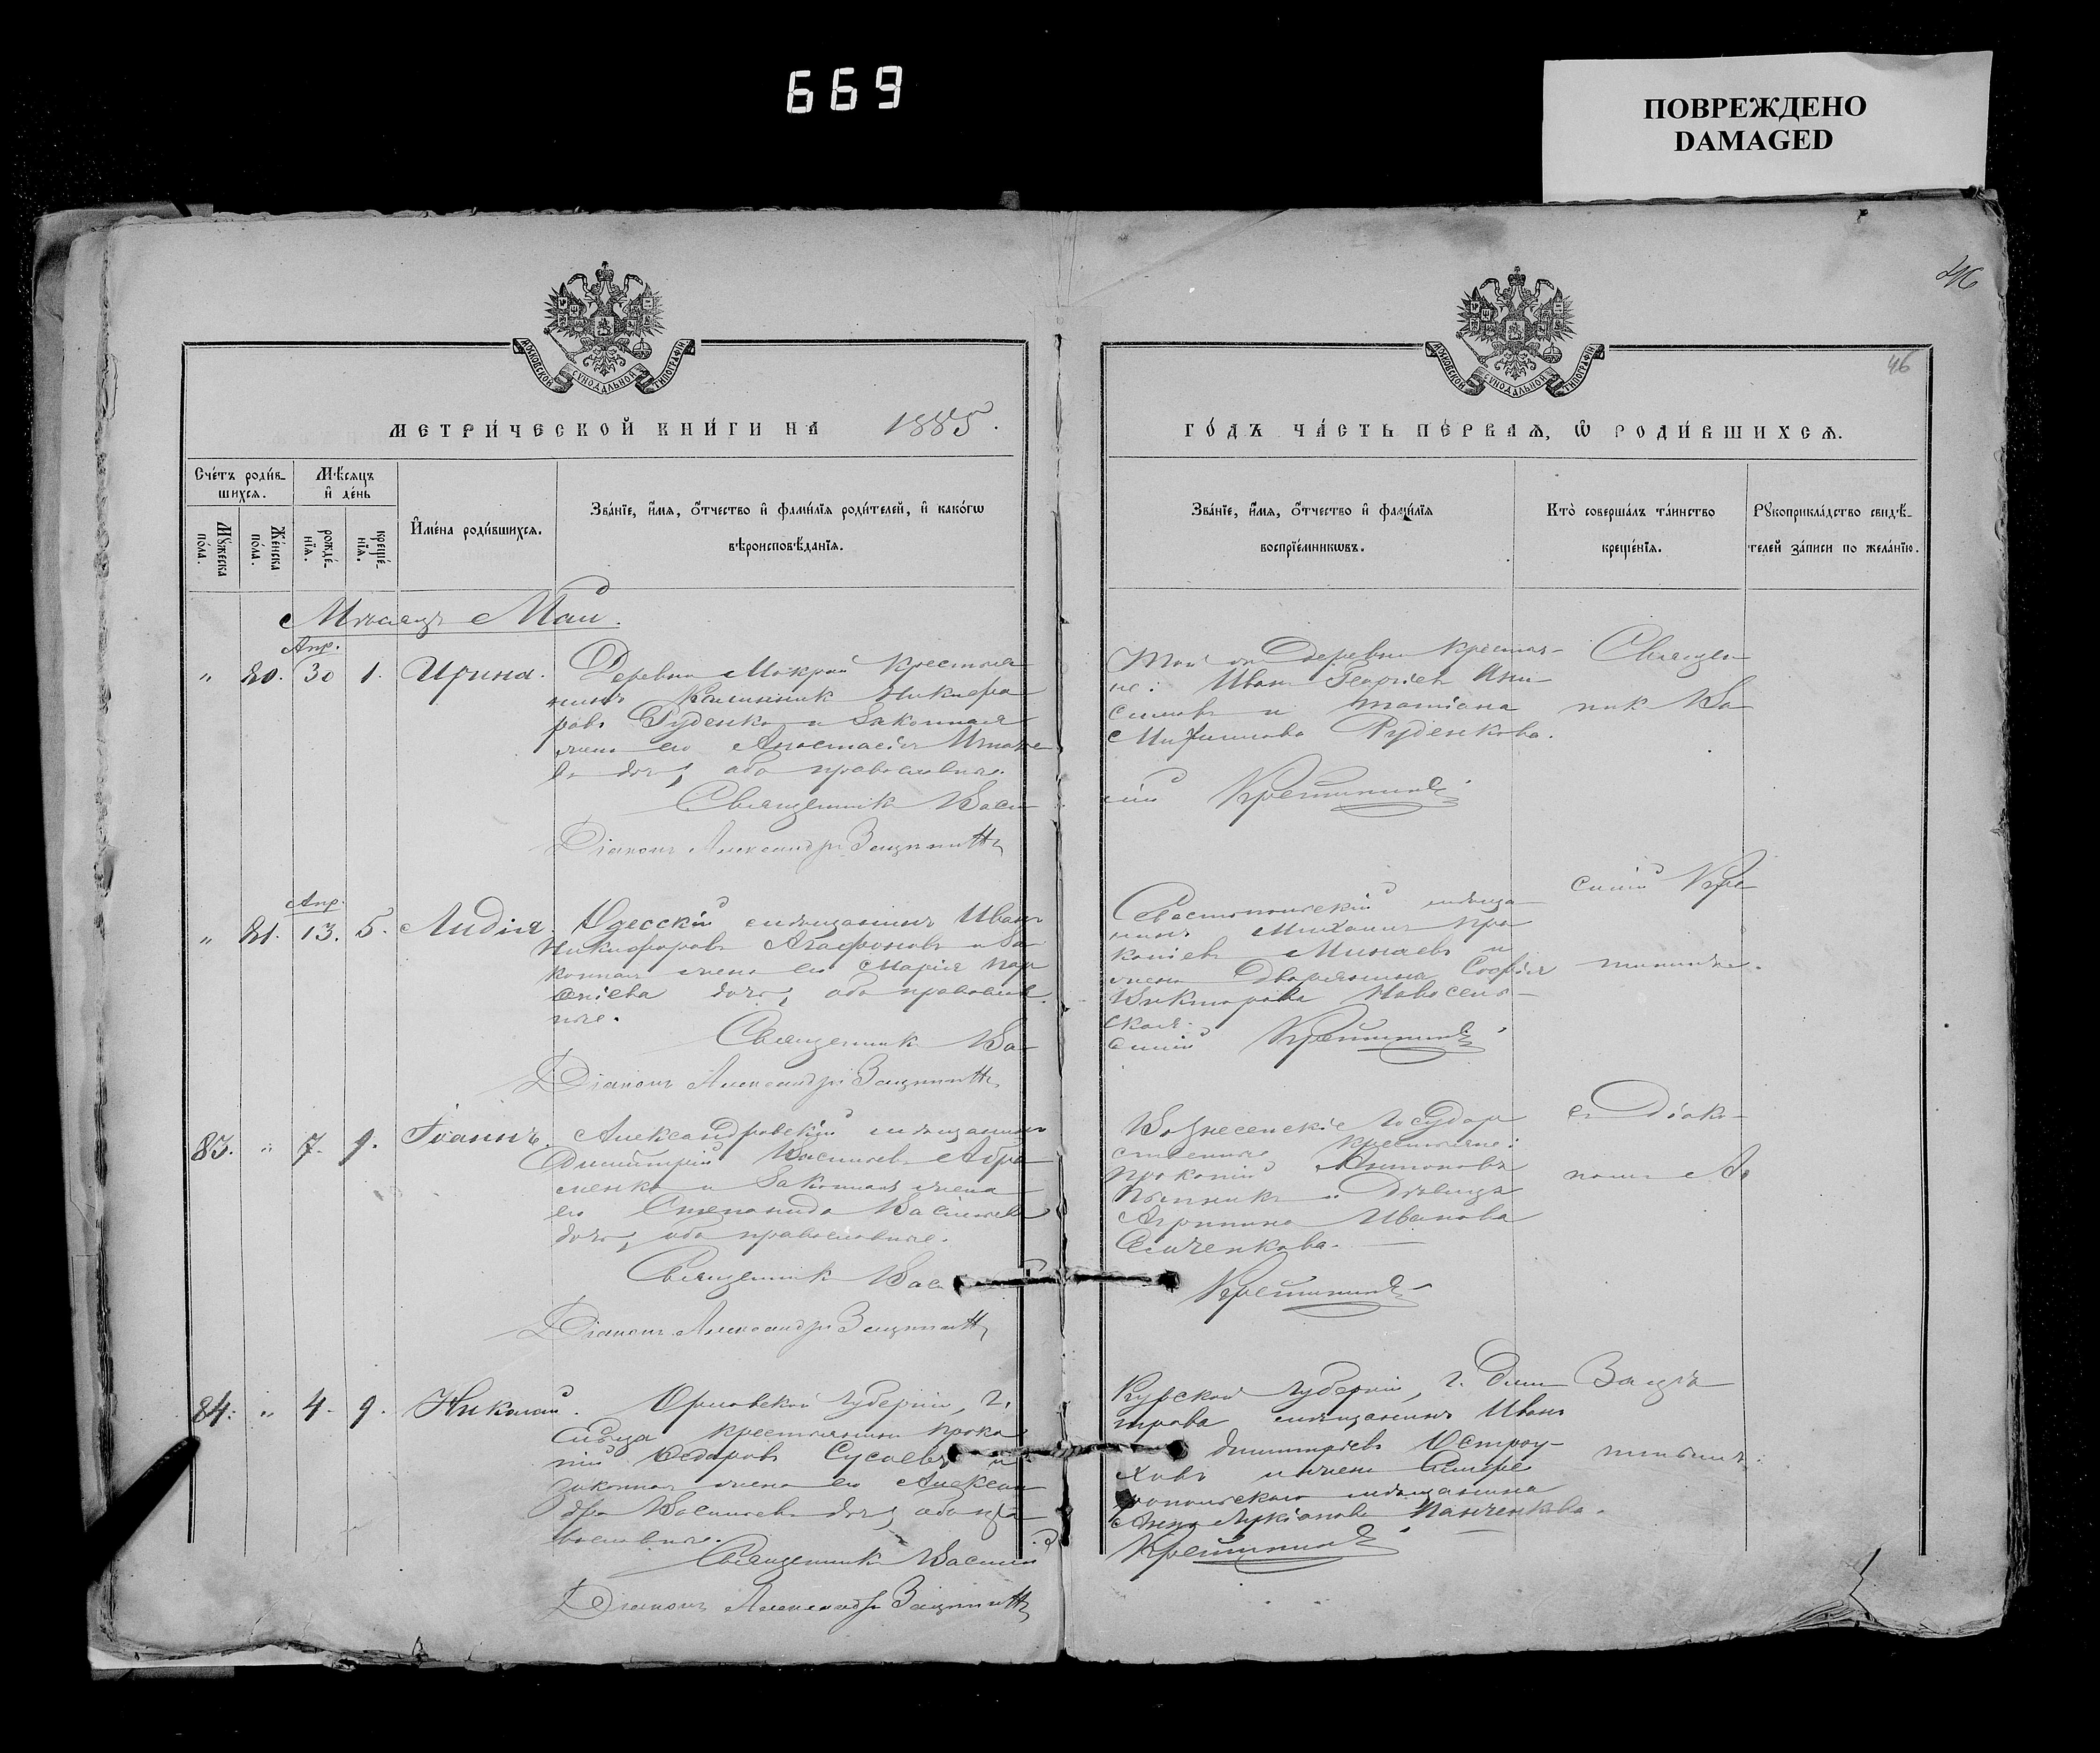 669
ПОВРЕЖДЕНО
DAMAGED
46
46
МОСКОВСКОЙ СУНОДАЛЬНОЙ ТИПОГРАФІИ
МОСКОВСКОЙ СУНОДАЛЬНОЙ ТИПОГРАФІИ
МЕТРИ́ЧЕСКОЙ КНИ́ГИ НА 1885.
ГО́ДЪ ЧА́СТЬ ПЕ́РВАѦ, Ѡ РОДИ́ВШИХСѦ.
Сче́тъ роди́в-
шихсѧ.
Мѣ́сѧцъ
и҆ де́нь
Мꙋ́жеска
по́ла.
Же́нска
по́ла.
рожде́-
нїѧ.
креще́-
нїѧ.
И҆мена̀ роди́вшихсѧ.
Зва́нїе, и҆́мѧ, о҆́тчество и҆ фами́лїѧ роди́телей, и҆ како́гѡ
вѣроисповѣ́данїѧ.
Зва́нїе, и҆́мѧ, о҆́тчество и҆ фами́лїѧ
воспрїе́мникѡвъ.
Кто̀ соверша́лъ та́инство
креще́нїѧ.
Рꙋкоприкла́дство свидѣ́-
телей за́писи по жела́нїю.
Мѣсяцъ Май.
Апр.
„ 80. 30 1. Ирина.
Деревни Мокрой крестья
нинъ Калинникъ Никифо
ровъ Руденко и законная
жена его Анастасія Игнатье
ва дочь, оба православные.
Священникъ Васи
Діаконъ Александръ Защитинъ
Той же деревни крестья-
не: Иванъ Георгіевъ Ани
симовъ и Татіана
Руденкова.
лій Крещининъ
Священ
никъ Ва
Апр.
„ 81. 13. 5. Лидія.
Одесскій мѣщанинъ Иванъ
Никифоровъ Агафоновъ и за
конная жена его Марія
дочь, оба православ
ные.
Священникъ Ва
Діаконъ Александръ Защитинъ
Севастопольскій мѣща
нинъ Михаилъ Про
копіевъ Минаевъ и
жена дворянина Софія
Викторова Новосель-
ская.
силій Крещининъ
силій Кре
83. „ 7. 9. Іоаннъ.
Александровскій мѣщанинъ
Димитрій Васильевъ Абра
менко и законная жена
его Степанида Васильева
дочь, оба православные.
Священникъ Вас
Діаконъ Александръ Защитинъ
Вознесенскіе государ
ственные крестьяне:
Прокопій Антоновъ
и дѣвица
Агрипина Иванова
Семченкова.
Крещининъ
съ діако-
номъ Ал
84. „ 4. 9. Николай.
Орловской губерніи, г.
Сѣвца крестьянинъ Проко
пій Федоровъ Сусоевъ и
законная жена его Алексан
дра Васильева дочь, оба пра
вославные.
Священникъ Василій
Діаконъ Александръ Защитинъ
Курской губерніи, г. Дми
трова мѣщанинъ Иванъ
Димитріевъ Остроу-
ховъ и жена Симфе
ропольскаго мѣщанина
Анна Лукіанова Панченкова.
Крещининъ
Защи